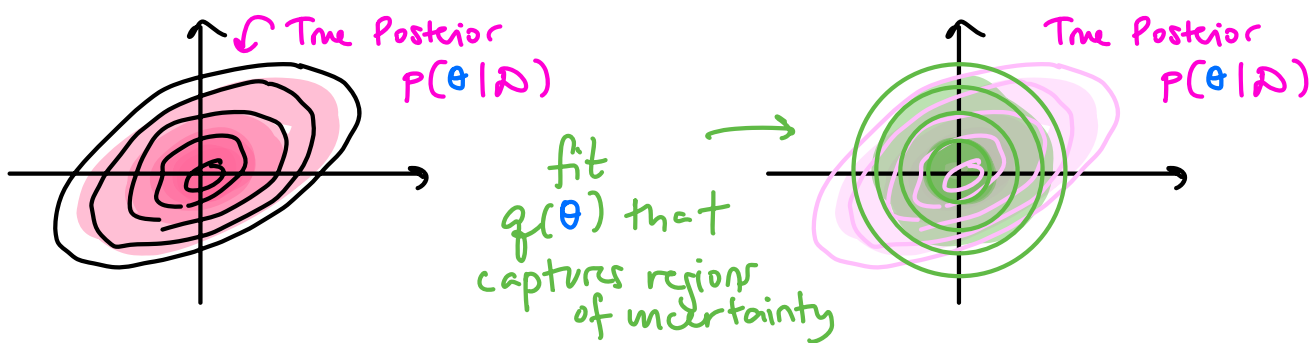 True Posterior
p(θ|D)
fit
q(θ) that
captures regions
of uncertainty
True Posterior
p(θ|D)